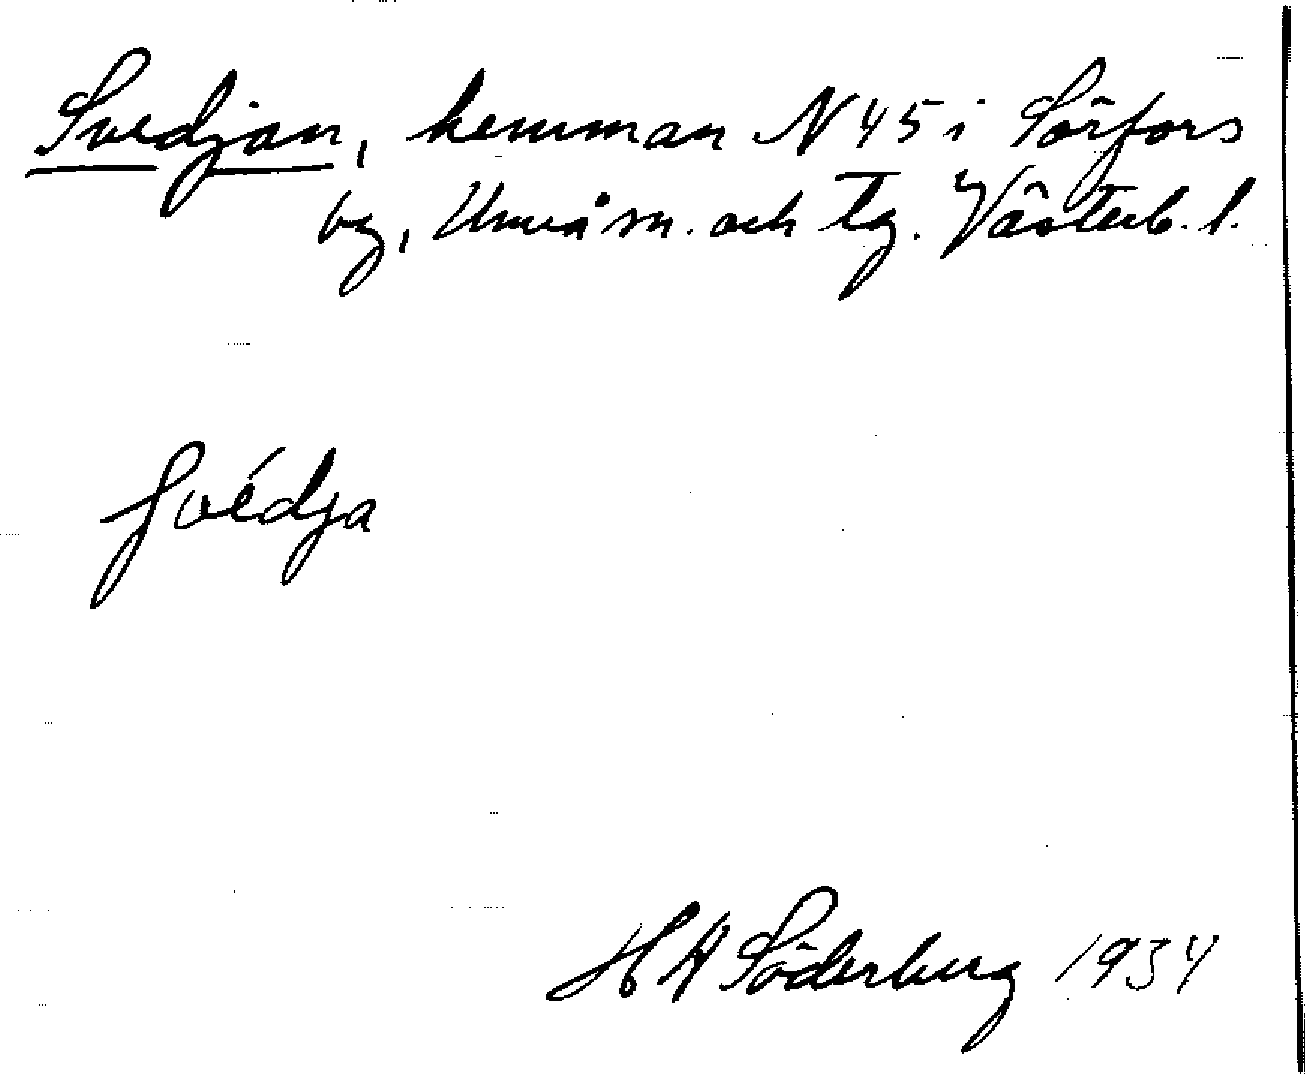 Svedjan, hemman N 45 i Sörfors
by, Umeå sn. och tg. Västerb. l.
svédja
H A Söderberg 1934